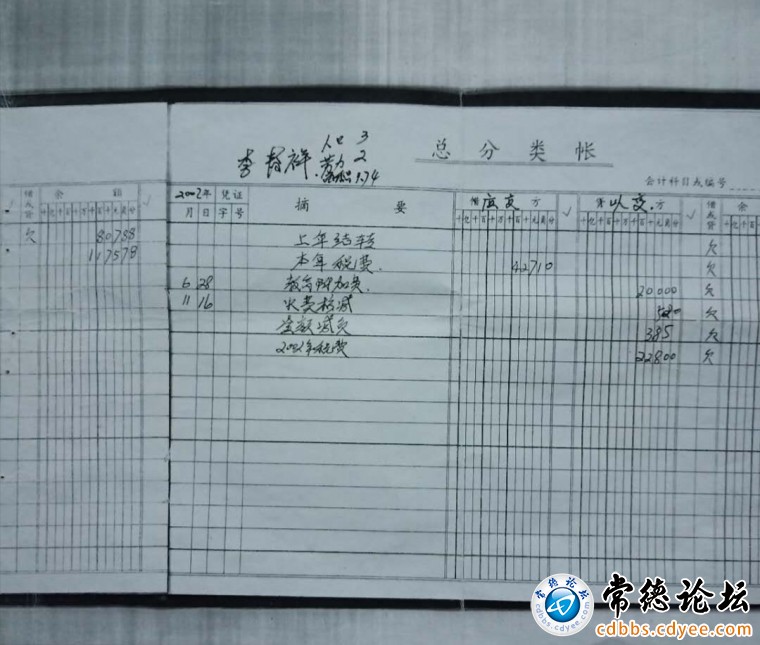 人口 3
李哲祥 劳力 2
1.74
总分类帐
会计科目或编号
借或贷 余 额 √
欠 80788
117578
2002年 凭证 摘 要 借 应交 方 √ 贷 以交 方 √ 借或贷 余
月 日 字 号
上年结转 欠
本年税费 42710 欠
6 28 20000 欠
11 16 水费核减 580 欠
金额减负 385 欠
2002年税费 22800 欠
常德论坛
常德论坛
cdbbs.cdyee.com